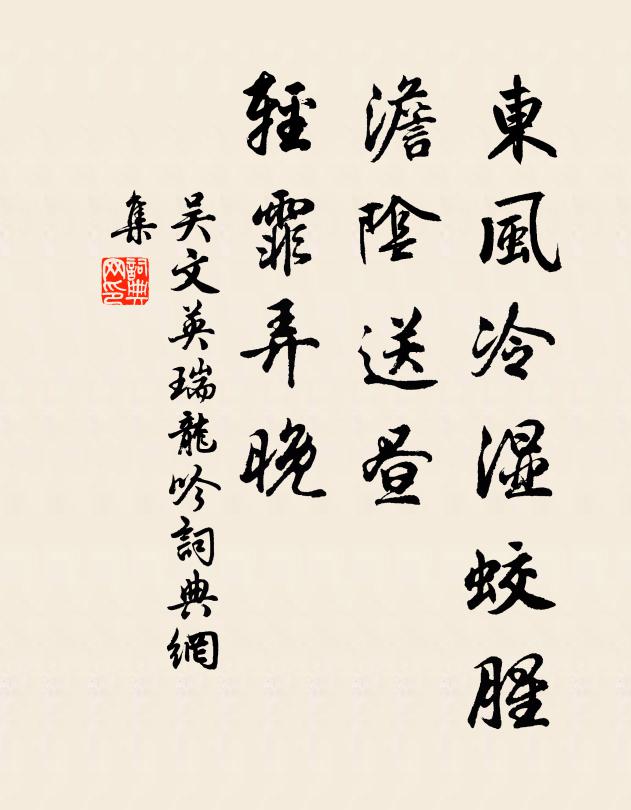 東風冷濕蛟腥
澹陰送昼
輕霏弄晚
吴文英瑞龍吟詞典網
集
詞典網印